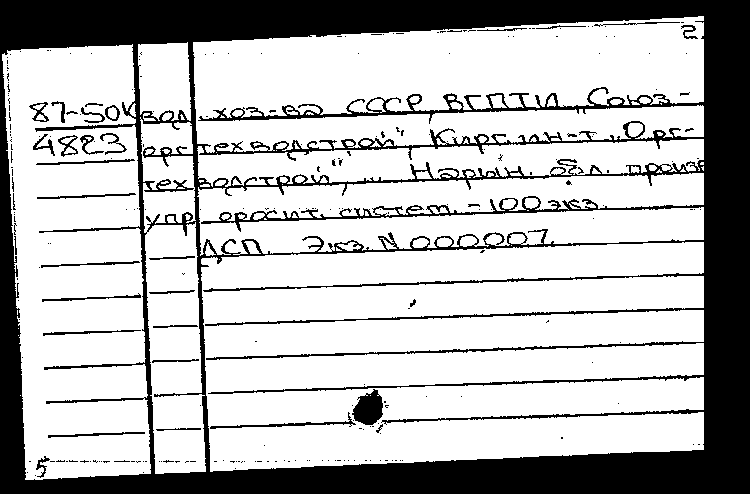 2.
87-50к вод. хоз-ва СССР, ВГПТИ „Союз-
4823 оргтехводстрой", Кирг. ин-т „Орг-
техводстрой", ... Нарын. обл. произв
упр. оросит. систем. - 100 экз.
ДСП. Экз. N 000007.
5